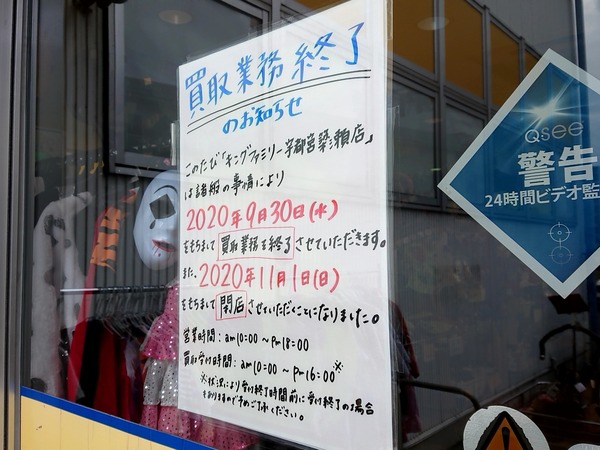 買取業務終了
のお知らせ
このたび「キングファミリー宇都宮簗瀬店」
は諸般の事情により
2020年9月30日(水)
をもちまして買取業務を終了させていただきます。
また、2020年11月1日(日)
をもちまして閉店させていただくことになりました。
営業時間：am10:00～Pm18:00
買取受付時間：am10:00～Pm16:00※
※状況により受付終了時間前に受付終了の場合
もありますので予めご了承ください。
Qsee
警告
24時間ビデオ監